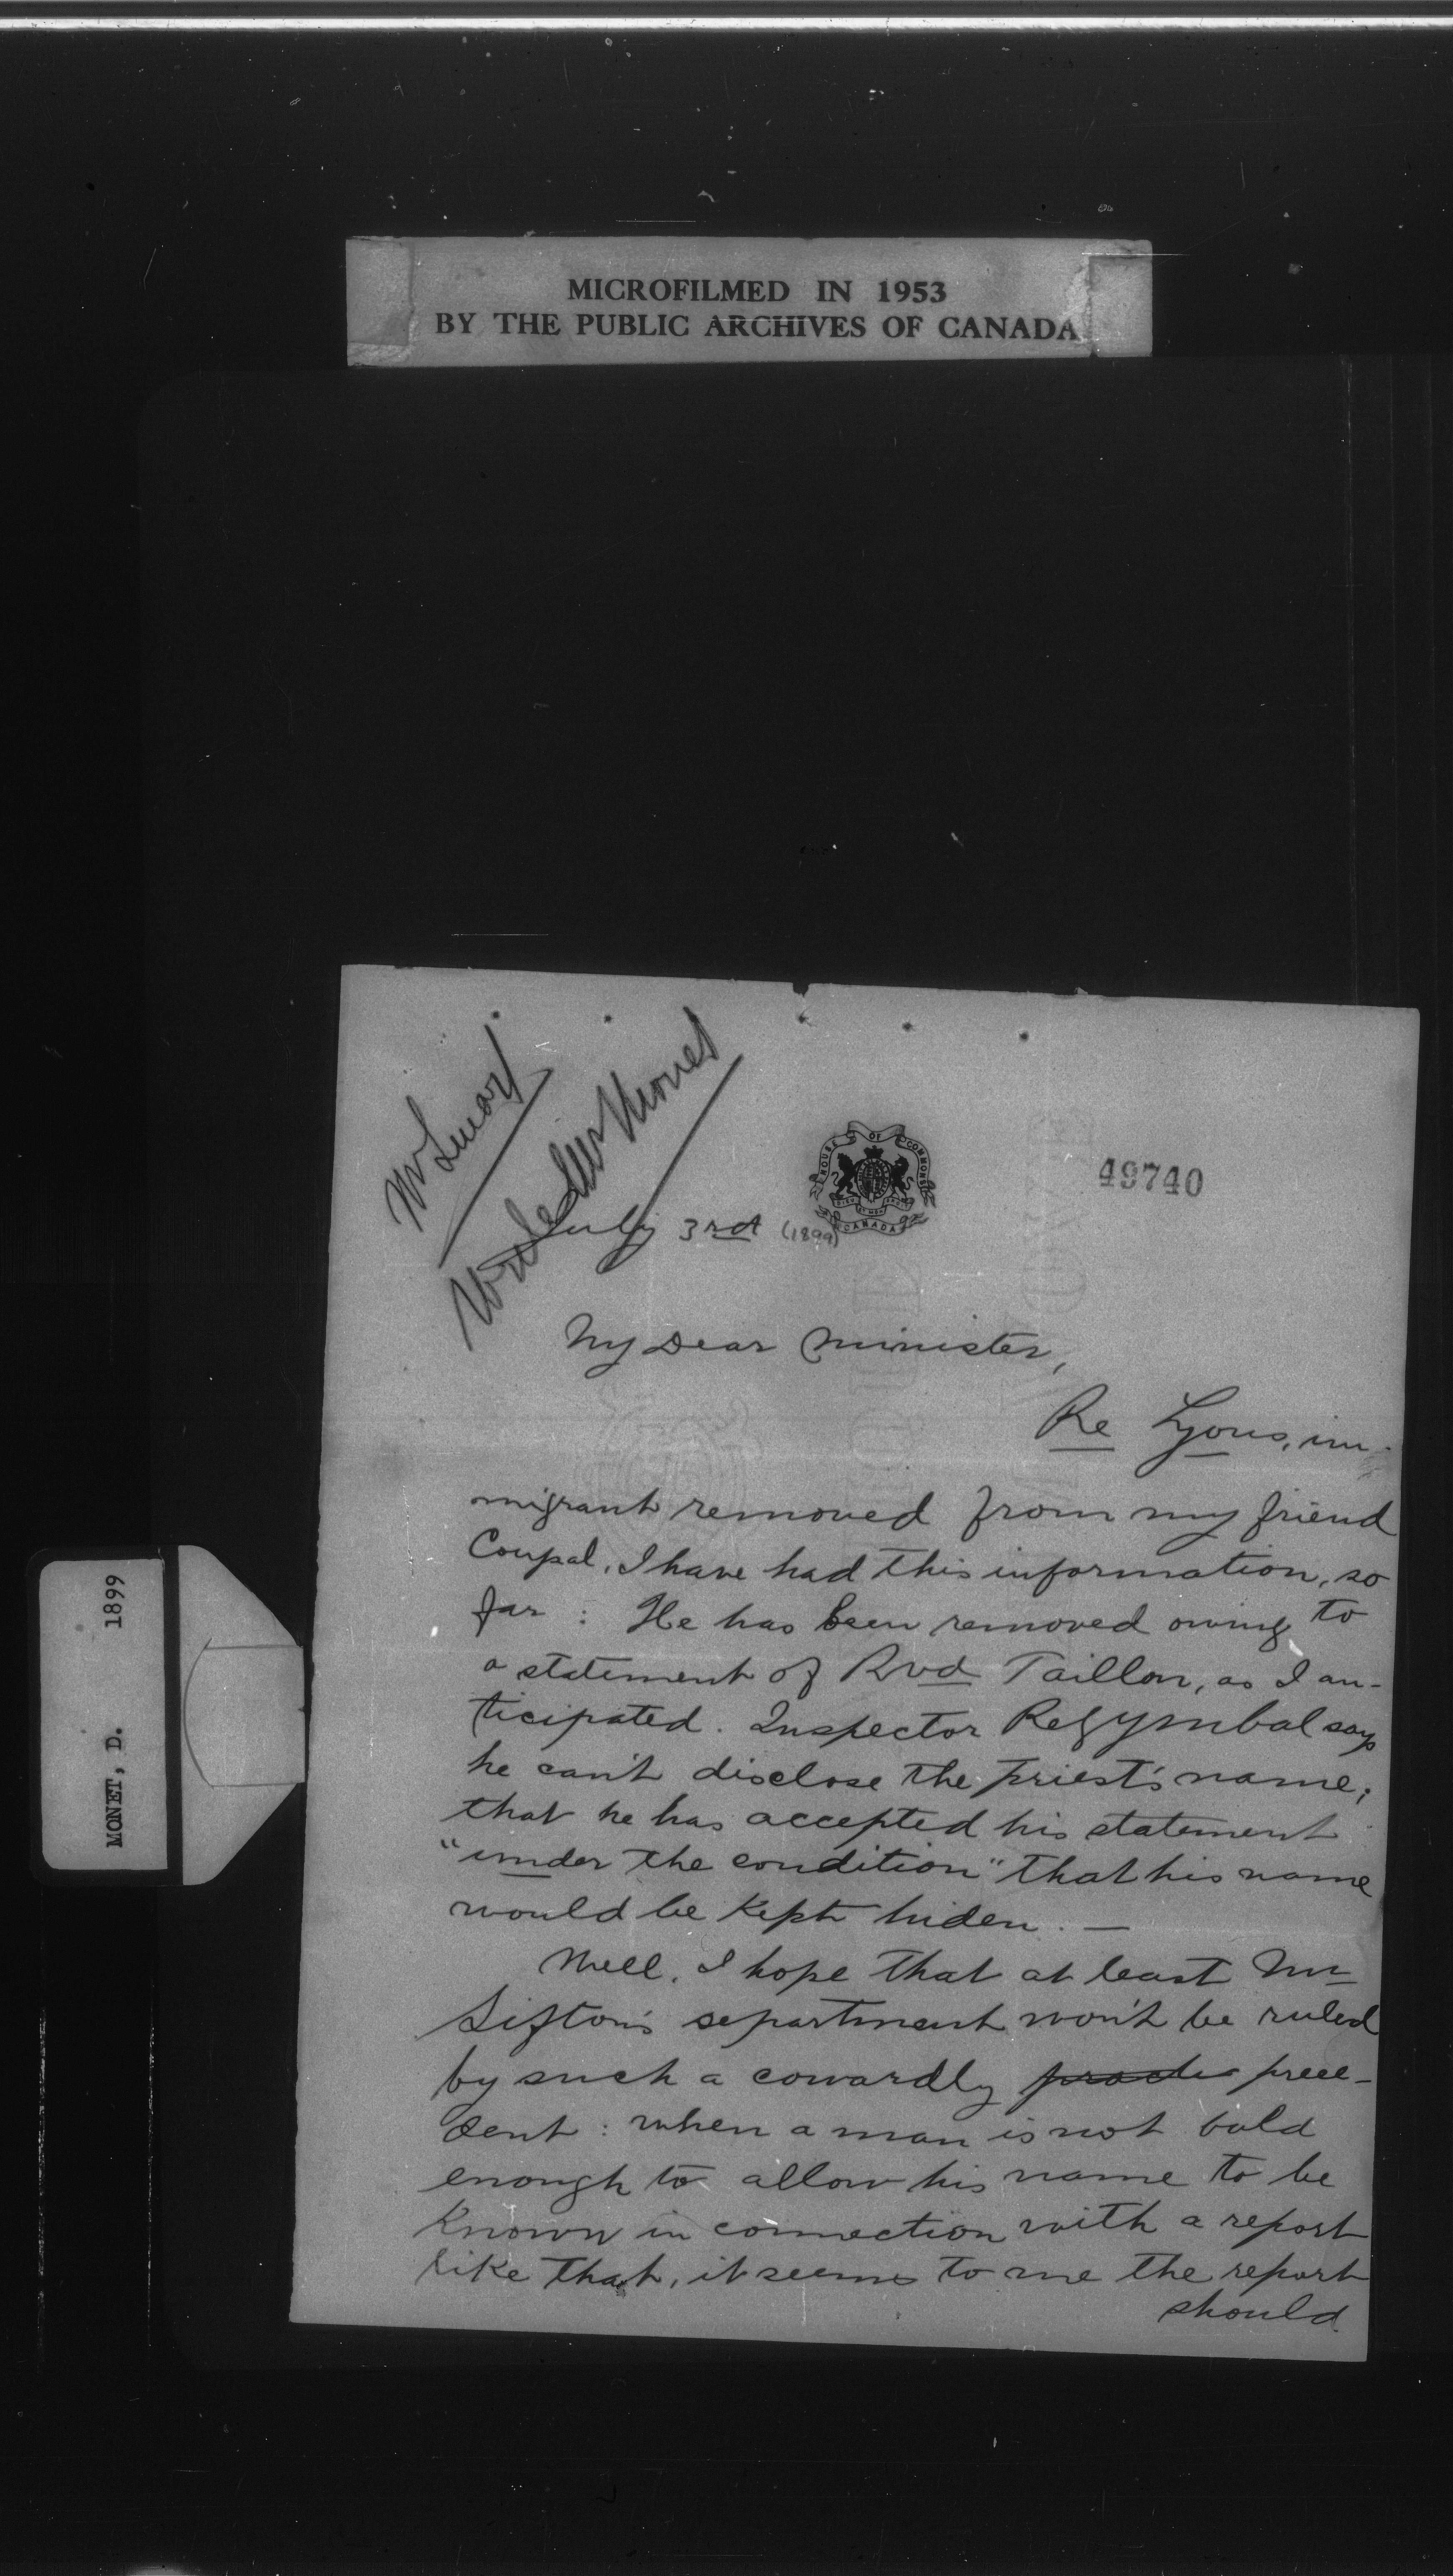 MICROFILMED IN 1953
BY THE PUBLIC ARCHIVES OF CANADA
MONET, D. 1899
Mr Smart
Write Mr Monet
HOUSE OF COMMONS
CANADA
49740
July 3rd (1899)
My Dear Minister,
Re Lyons, im-
migrant removed from my friend
Coupal, I have had this information, so
far : He has been removed owing to
a statement of Rvd Taillon, as I an-
ticipated. Inspector Regymbal says
he can't disclose the priest's name;
that he has accepted his statement
"under the condition" that his name
would be kept hiden. —
Well, I hope that at least Mr
Sifton's department won't be ruled
by such a cowardly prece-
dent : when a man is not bold
enough to allow his name to be
known in connection with a report
like that, it seems to me the report
should